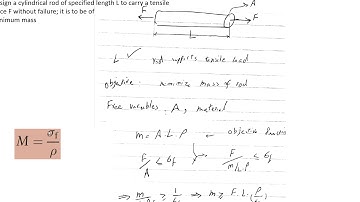 sign a cylindrical rod of specified length L to carry a tensile
ce F without failure; it is to be of
nimum mass
F
A
F
L
L ✓ rod supports tensile load
objective minimize mass of rod
Free variables. A, material
m = A L ρ ← objective function
F/A ≤ σf F/(m/Lρ) ≤ σf
M = σf/ρ
⇒ m ≥ F. L. (ρ